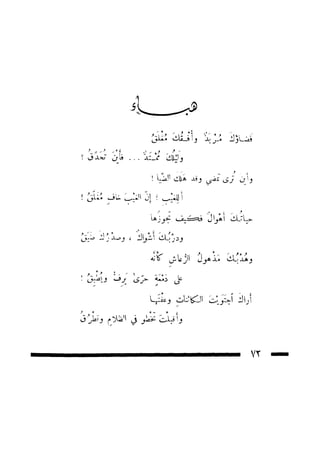 هباء
فضاؤك مُربدٌّ وأفقُكَ مُغْلَقُ
وليلُكَ مُمْتدٌّ ... فأينَ تُحَدِّقُ !
وأين تُرى تمضي وقد هلكَ الضّيا !
أللغيبِ ! إنَّ الغيبَ خافٍ مُغَلَّقُ !
حياتُكَ أهوالٌ فكيف تجوزها
ودربُكَ أشواكٌ ، وصدرُكَ ضيّقُ
وهُدْبُكَ مذهولُ الرُّعاشِ كأنّه
على دَمْعةٍ حرّى يَرِفُّ ويُطبِقُ !
أراكَ اجتويتَ الكائناتِ وعفتَها
وأقبلتَ تخطو في الظلامِ وتطرُقُ
٧٣